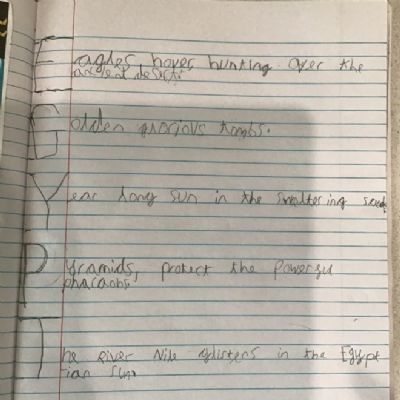 Eagles hover hunting over the
ancient desert.
Golden glorious tombs.
Year long sun in the sweltering sand
Pyramids, protect the powerful
pharaohs
The River Nile glistens in the Egypt
ian sun